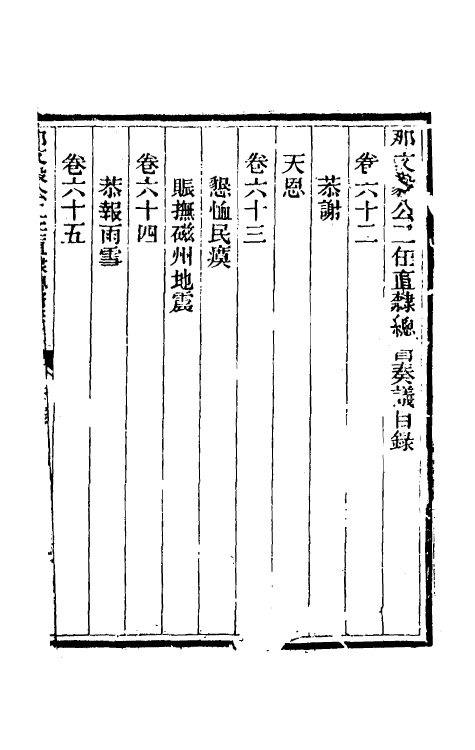 那文毅公二任直隸總督奏議目錄
卷六十二
恭謝
天恩
卷六十三
懇恤民瘼
賑撫磁州地震
卷六十四
恭報雨雪
卷六十五